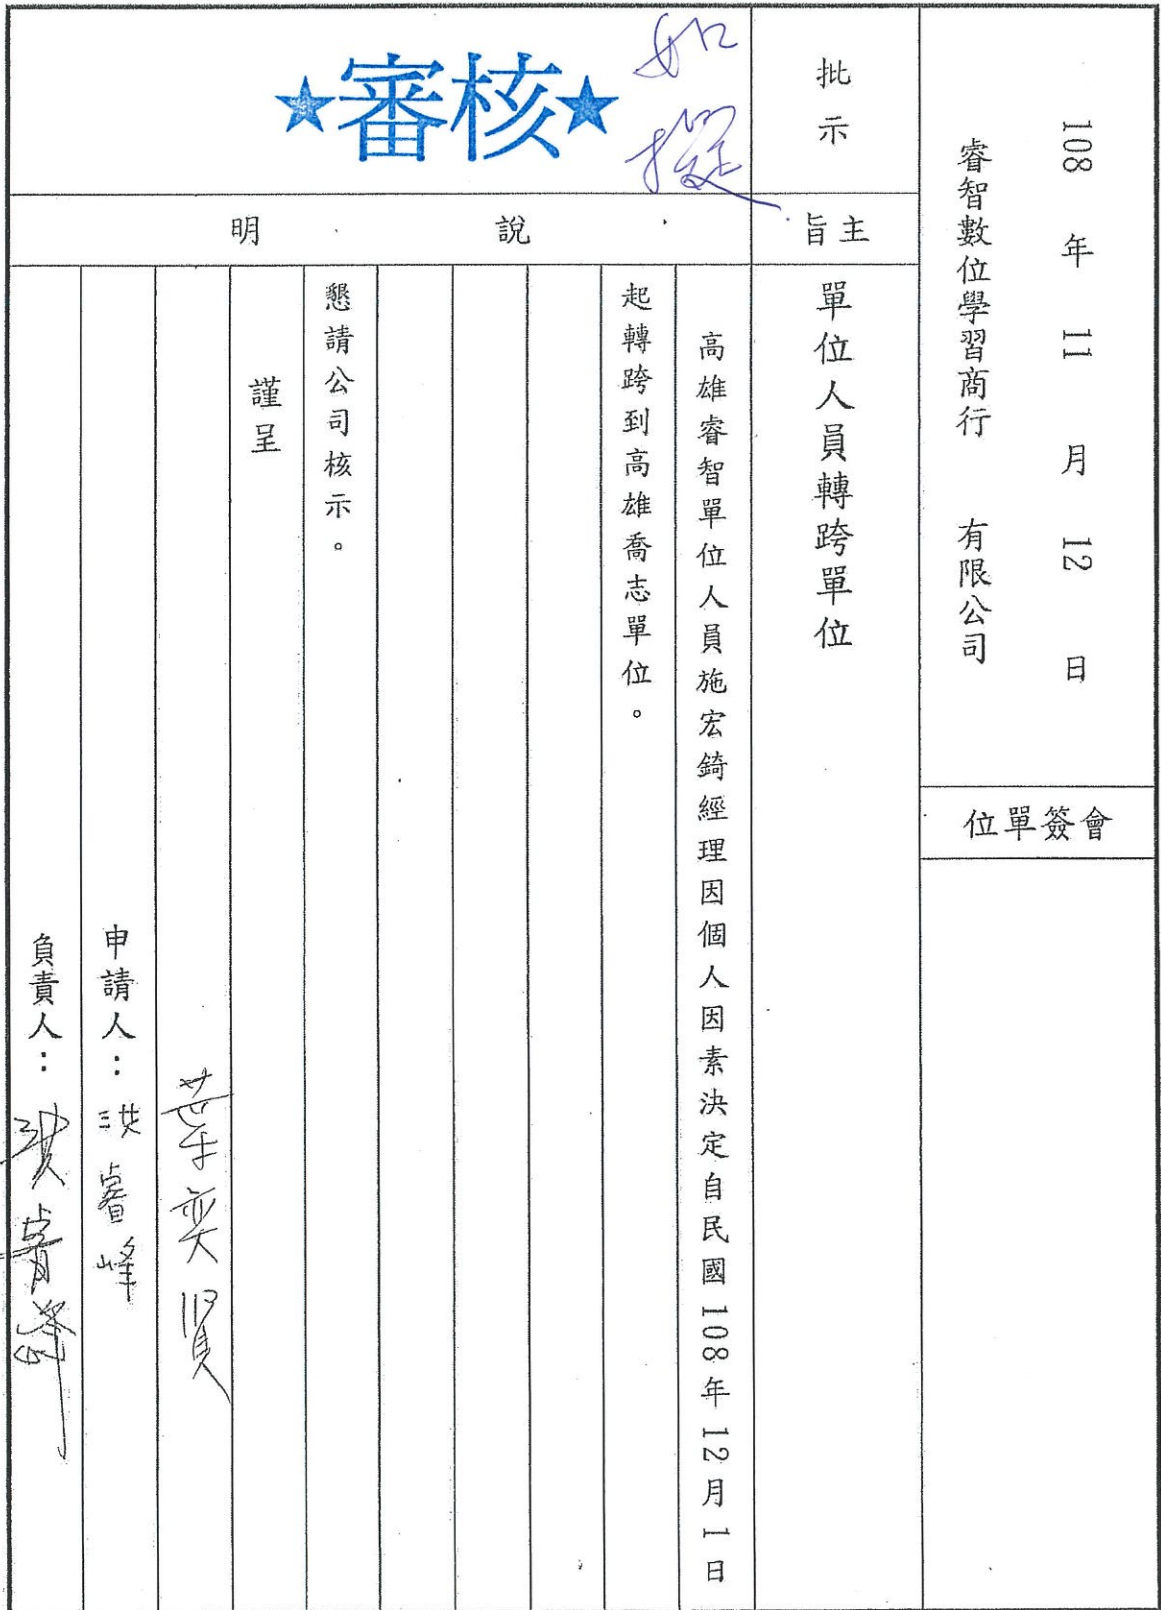 108 年 11 月 12 日
睿智數位學習商行 有限公司
會簽單位
批示
如擬
★審核★
主旨
單位人員轉跨單位
說明
高雄睿智單位人員施宏錡經理因個人因素決定自民國108年12月1日
起轉跨到高雄喬志單位。
懇請公司核示。
謹呈
葉奕賢
申請人：洪睿峰
負責人：洪睿峰